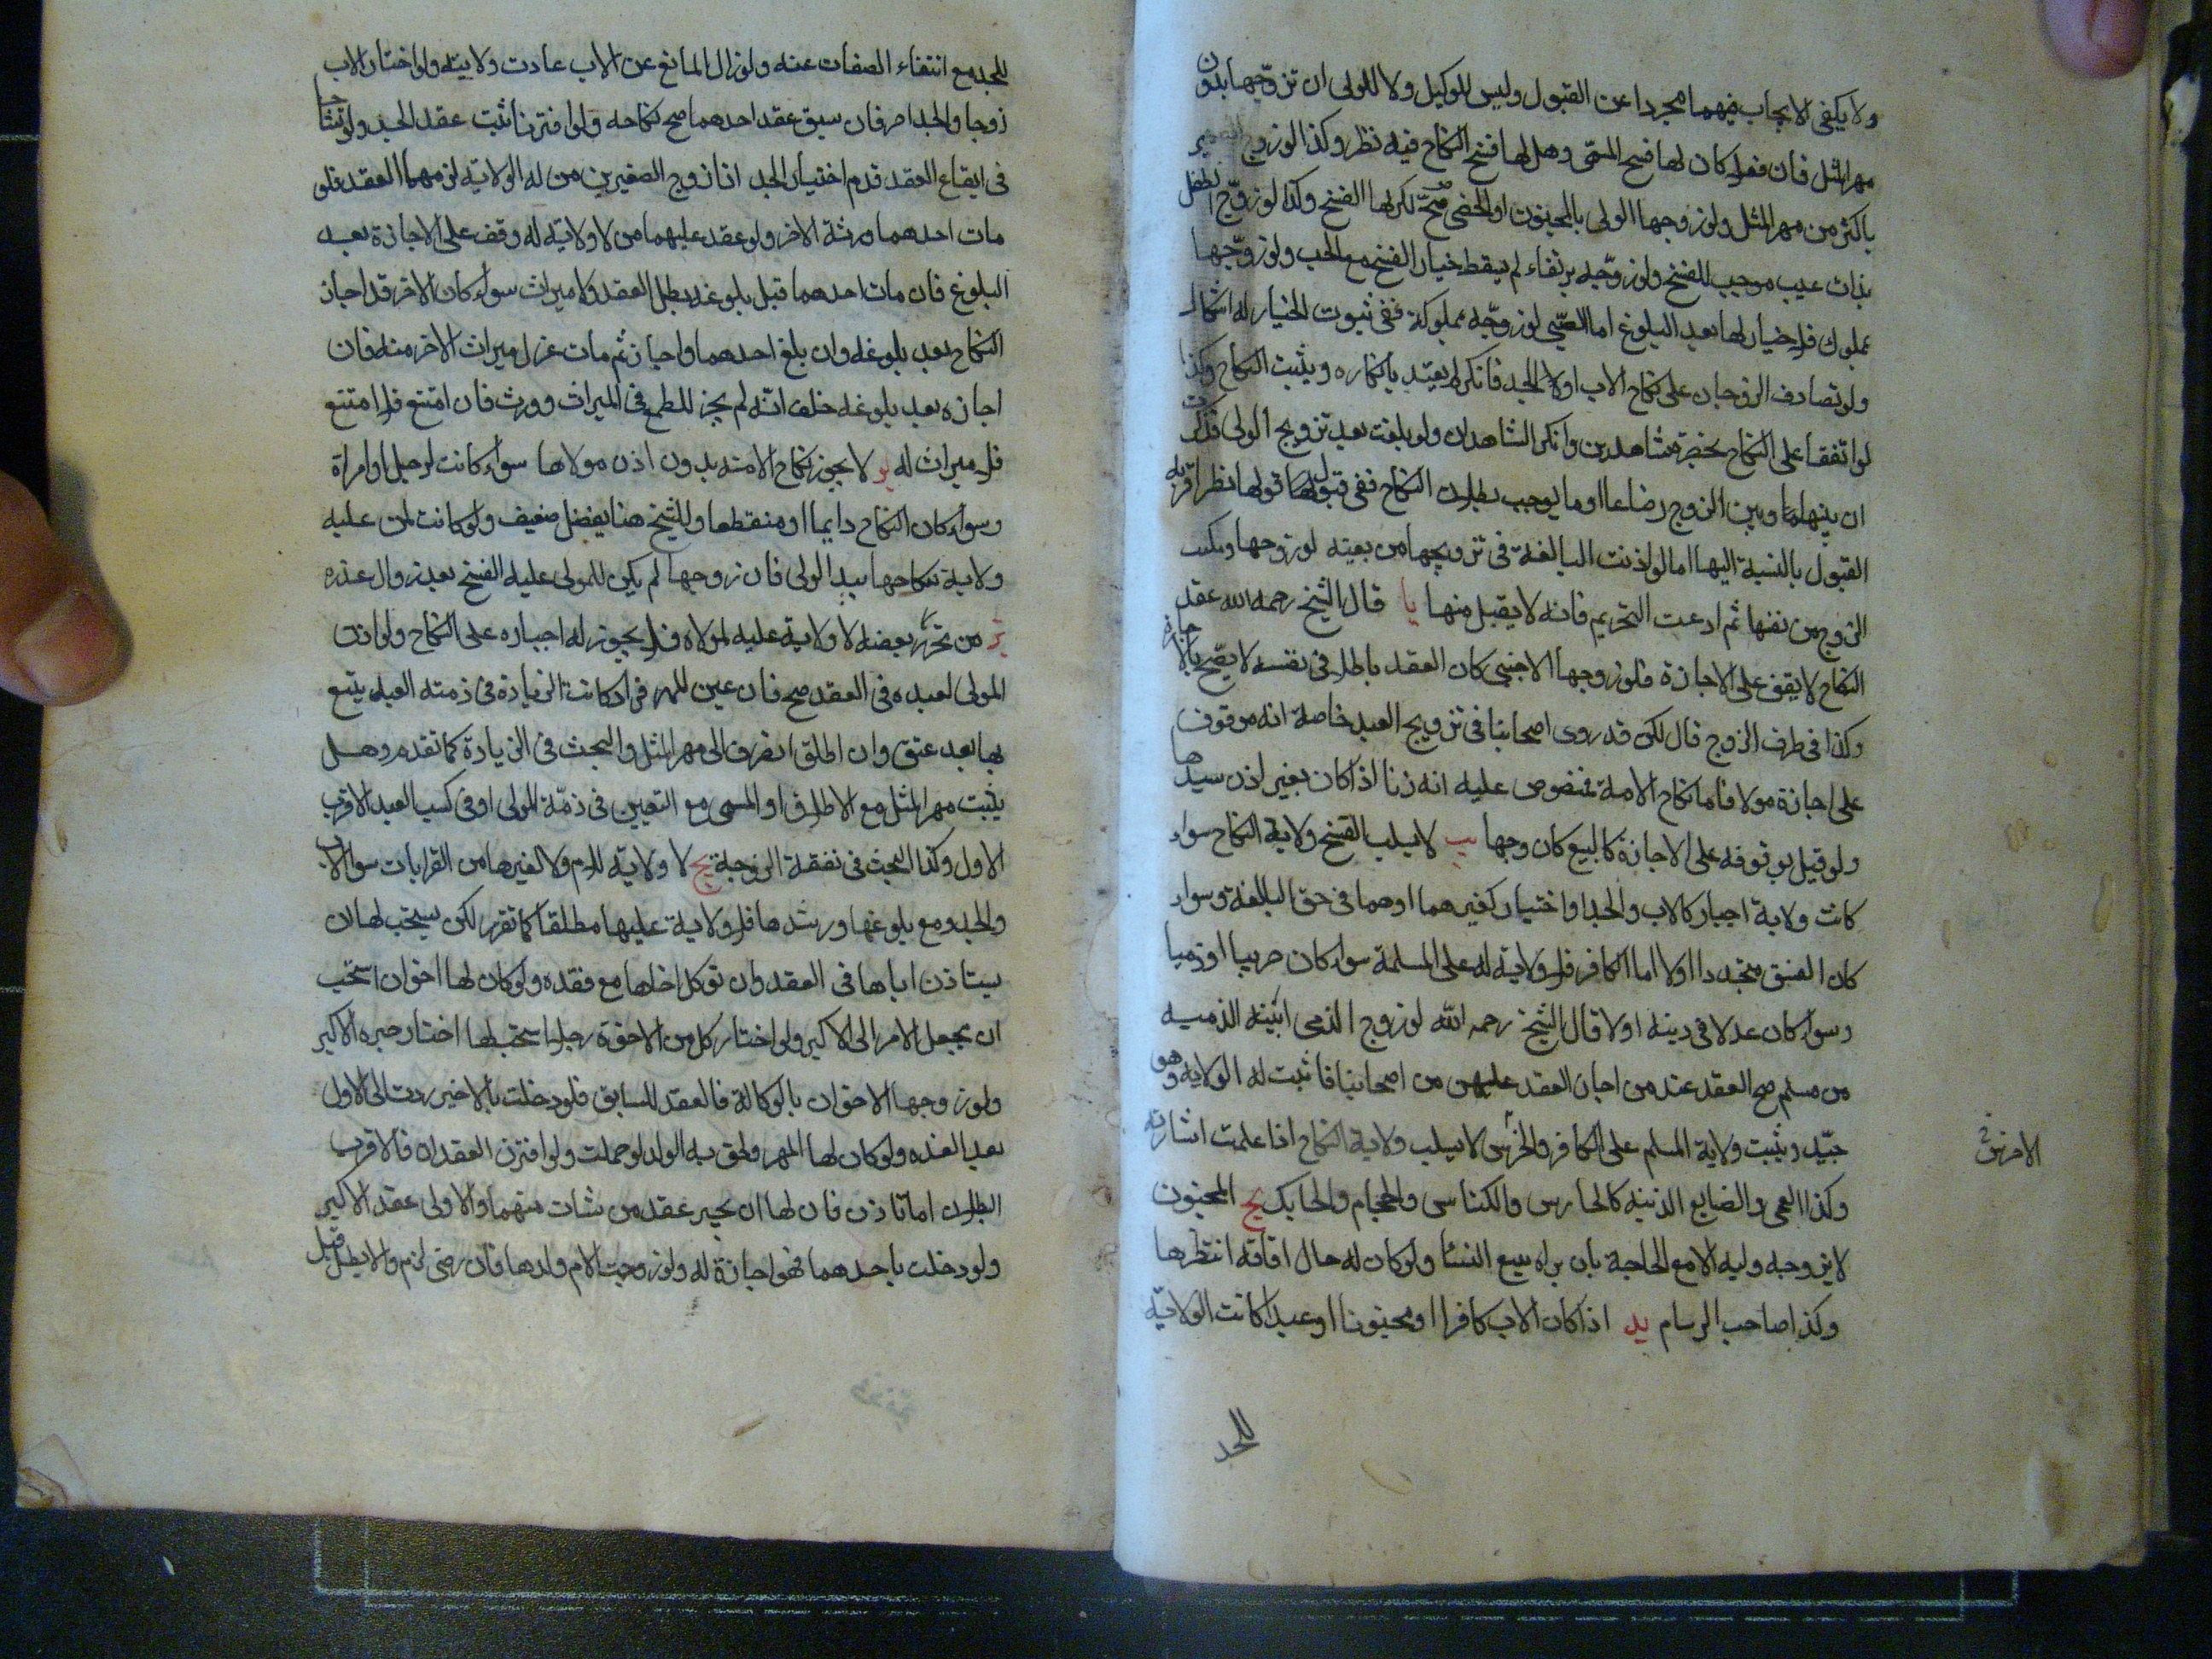 ولا يكفى الايجاب فيهما مجردا عن القبول وليس للوكيل ولا للولى ان تزوّجها بدون
مهر المثل فان فعلا كان لها فسخ المسمّى وهل لها فسخ النكاح فيه نظر وكذا لو زوج الصغير
باكثر من مهر المثل ولو زوجها الولى بالمجنون او الخصى صحّ لكن لها الفسخ وكذا لو زوّج الطفل
بذات عيب موجب للفسخ ولو زوّجه برتقاء لم يسقط خيار الفسخ مع الجب ولو زوّجها
بمملوك فلا خيار لها بعد البلوغ اما الصّبى لو زوّجه بمملوكة ففى ثبوت الخيار له اشكال
ولو تصادف الزوجان على نكاح الاب اولا الجد فانكر لم يعتد بانكاره ويثبت النكاح وكذا
لو اتفقا على النكاح بحضرة شاهدين وانكر الشاهدان ولو بلغت بعد تزويج الولى فذكرت
ان بينها وبين الزوج رضاعا او ما يوجب بطلان النكاح ففى قبول قولها نظر اقربه
القبول بالنسبة اليها اما لو اذنت البالغة فى تزويجها من بعينه لو زوجها ومكنت
الزوج من نفسها ثم ادعت التحريم فانه لا يقبل منها يا قال الشيخ رحمه الله عقد
النكاح لا يقف على الاجازة فلو زوجها الاجنبى كان العقد باطلا فى نفسه لا يصّح بالاجازة
وكذا فى طرف الزوج قال لكن قد روى اصحابنا فى تزويج العبد خاصة انه موقوف
على اجازة مولا فاما نكاح الامة فمنصوص عليه انه زنا اذا كان بغير اذن سيدها
ولو قيل بوقوفه على الاجازة كالبيع كان وجها يب لا يسلب الفسخ ولاية النكاح سواء
كانت ولاية اجبار كالاب والجد او اختيار كغيرهما اوهما فى حق البالغة وسواء
كان الفسق متجددا اولا اما الكافر فلا ولاية له على المسلمة سواء كان حربيا او ذميا
وسواء كان عدلا فى دينه اولا قال الشيخ رحمه الله لو زوج الذمى ابنته الذمية
من مسلم صح العقد عند من اجاز العقد عليهن من اصحابنا فاثبت له الولاية وهو
جيّد ويثبت ولاية المسلم على الكافر والخرس لا يسلب ولاية النكاح اذا علمت اشارته
وكذا العمى والصنايع الدنيه كالحارس والكناس والحجام والحايك يج المجنون
لا يزوجه وليه الا مع الحاجة بان يراه يتبع النسا ولو كان له حال افاقة انتظرها
وكذا صاحب البرسام يد اذا كان الاب كافرا او مجنونا او عبدا كانت الولاية
للجد
للجد مع انتفاء الصفات عنه ولو زال المانع عن الاب عادت ولايته ولو اختار الاب
زوجا والجد اخر فان سبق عقد احدهما صح نكاحه ولو اقترنا ثبت عقد الجد ولو تشاحا
فى ايقاع العقد قدم اختيار الجد اذا زوج الصغيرين من له الولاية لزمهما العقد فلو
مات احدهما ورثة الاخر ولو عقد عليهما من لا ولاية له وقف على الاجازة بعد
البلوغ فان مات احدهما قبل بلوغه بطل العقد ولا ميراث سواء كان الاخر قد اجاز
النكاح بعد بلوغه وان بلغ احدهما واجاز ثم مات عزل ميراث الاخر منه فان
اجازه بعد بلوغه حلف انّه لم يجز للطمع فى الميراث وورث فان امتنع فلا امتنع
فلا ميراث له يو لا يجوز نكاح الامة بدون اذن مولاها سواء كانت لرجل او امراة
وسواء كان النكاح دايما او منقطعا وللشيخ هنا تفصيل ضعيف ولو كانت لمن عليه
ولاية نكاحها بيد الولى فان زوجها لم يكن للمولى عليه الفسخ بعد زوال عذره
يز من تحرّر بعضه لا ولاية عليه لمولاه فلا يجوز له اجباره على النكاح ولو اذن
المولى لعبده فى العقد صح فان عين المهر فزاد كانت الزيادة فى ذمته العبد يتبع
بها بعد عتق وان اطلق انصرف الى مهر المثل والبحث فى الزيادة كما تقدم وهل
يثبت مهر المثل مع الاطلاق او المسمى مع التعيين فى ذمّة المولى او فى كسب العبد الاقرب
الاول وكذا البحث فى نفقة الزوجة يح لا ولاية للام ولا لغيرها من القرابات سوا الاب
والجد ومع بلوغها ورشدها فلا ولاية عليها مطلقا كما تقرر لكن يستحب لها ان
يستاذن اباها فى العقد وان توكل اخاها مع فقده ولو كان لها اخوان استحب
ان تجعل الامر الى الاكبر ولو اختار كل من الاخوة رجلا استحب لها اختار خيره الاكبر
ولو زوجها الاخوان بالوكالة فالعقد للسابق فلو دخلت بالاخير ردت الى الاول
بعد العده ولو كان لها المهر ولحق به الولد لو حملت ولو اقترن العقدان فالاقرب
البطلان اما تاذن فان لها ان تجيز عقد من شات منهما والاولى عقد الاكبر
ولو دخلت باحدهما فهو اجازة له ولو زوجت الام ولدها فان رضى لزم والا بطل قيل